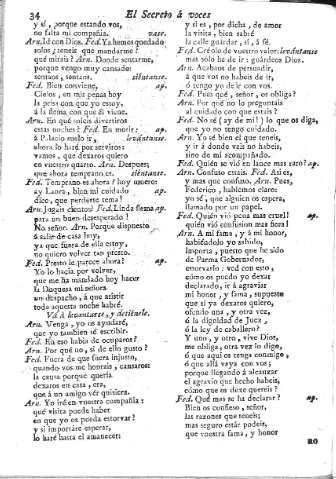 34 El Secreto á voces
y si, porque estando vos,
no falta mi compañia. vase.
Arn. Id con Dios. Fed. Ya hemos quedado
solos; teneis que mandarme?
qué mirais? Arn. Donde sentarme,
porque vengo muy cansado:
sentaos, sentaos. sientanse.
Fed. Bien conviene, ap.
Cielos, en mis penas hoy
la prisa con que yo estoy,
á la flema con que él viene.
Arn. En qué soleis divertiros
estas noches? Fed. En morir: ap.
á Palacio suelo ir, levántanse.
ahora lo haré por serviros:
vamos, que dexaros quiero
en vuestro quarto. Arn. Despues;
que ahora temprano es. siéntanse.
Fed. Temprano es ahora? hoy muero:
ay Laura, bien mi cuidado ap.
dice, que perderte tema!
Arn. Jugais cientos? Fed. Linda flema ap.
para un buen desesperado!
No señor. Arn. Porque dispuesto
á salir de casa hoy,
ya que fuera de ella estoy,
no quiero volver tan presto.
Fed. Presto le parece ahora? ap.
Yo lo hacia por volver,
que me ha mandado hoy hacer
la Duquesa mi señora
un despacho, á que asistir
toda aquesta noche habré.
Va á levantarse, y detiénele.
Arn. Venga, yo os ayudaré,
que yo tambien sé escribir.
Fed. En eso habia de ocuparos?
Arn. Por qué no, si de ello gusto?
Fed. Fuera de que fuera injusto,
quando vos me honrais, cansaros:
la causa porque queria
dexaros en casa, era,
que á un amigo ver quisiera.
Arn. Yo iré en vuestra compañia:
qué visita puede haber
en que yo os pueda estorvar?
y si importáre esperar,
lo haré hasta el amanecer:
y si es, por dicha, de amor
la visita, bien sabré
la calle guardar, sí, á fé.
Fed. Creolo de vuestro valor: levántanse
mas solo he de ir: guárdeos Dios.
Arn. Acabaos de persuadir,
á que vos no habeis de ir,
ó tengo yo de ir con vos.
Fed. Pues qué, señor, os obliga?
Arn. Por qué no la preguntais
al cuidado con que estais?
Fed. No sé (ay de mi!) lo que os diga,
que yo no tengo cuidado.
Arn. Yo sé bien el que teneis,
y ir á donde vais no habeis,
sino de mi acompañado.
Fed. Quién se vió en lance mas raro? ap.
Arn. Confuso estais. Fed. Así es,
y mas que confuso. Arn. Pues,
Federico, hablemos claro:
yo sé, que alguien os espera,
llamado por un papel.
Fed. Quién vió pena mas cruel! ap.
quién vió confusion mas fiera!
Arn. A mi fama, y á mi honor,
habiéndolo yo sabido,
importa, puesto que he sido
de Parma Gobernador,
estorvarlo: ved con esto,
cómo os puedo yo dexar
declarado, ir á agraviar
mi honor, y fama, supuesto
que si ya dexaros quiero,
ofendo una, y otra vez,
ó la dignidad de Juez,
ó la ley de caballero?
Y uno, y otro, vive Dios,
me obliga, otra vez lo digo,
ó que aquí os tenga conmigo,
ó que allá vaya con vos;
porque llegando á alcanzar
el agravio que hecho habeis,
cómo que os dexe quereis?
Fed. Qué mas se ha declarar? ap.
Bien os confieso, señor,
las razones que teneis;
mas seguro estár podeis,
que vuestra fama, y honor
no